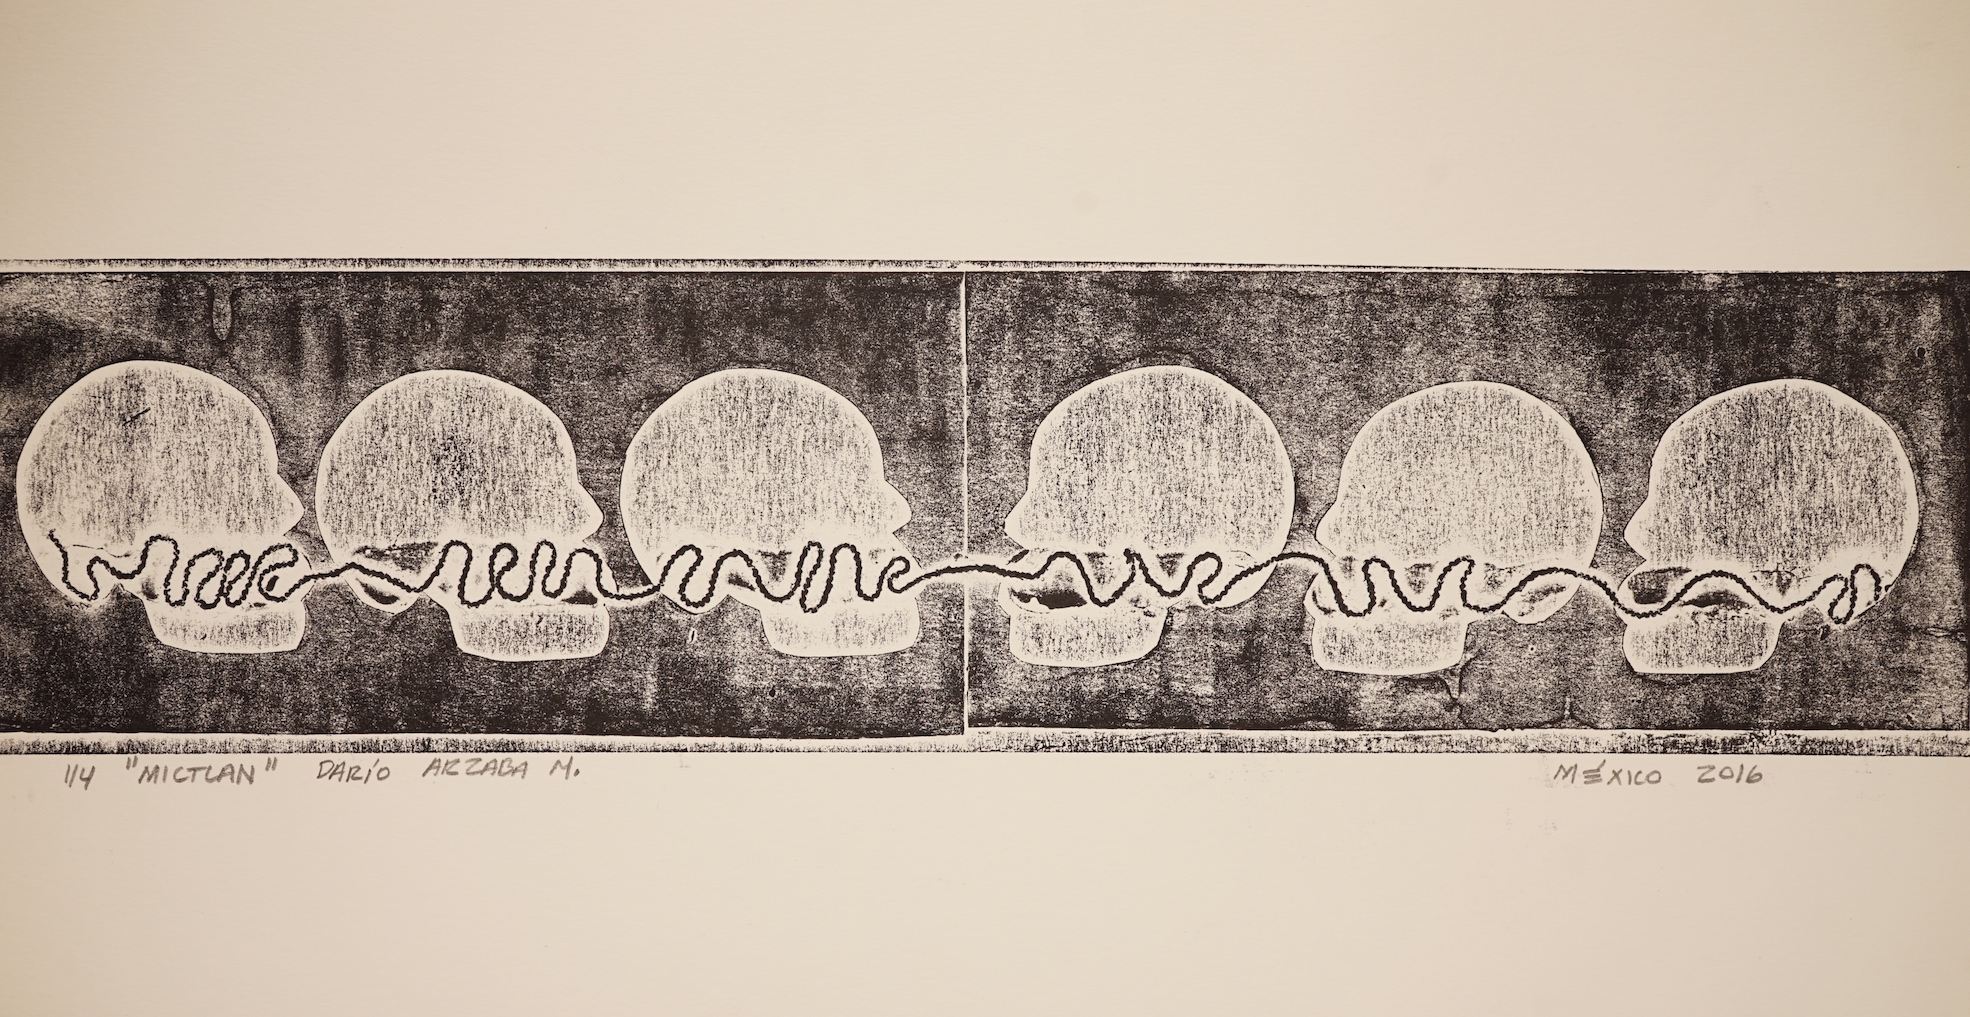 1/4 "MICTLAN" DARÍO ARZABA M. MÉXICO 2016